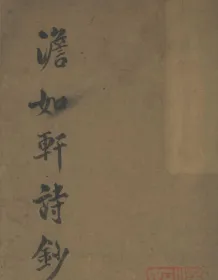 澹如軒詩鈔